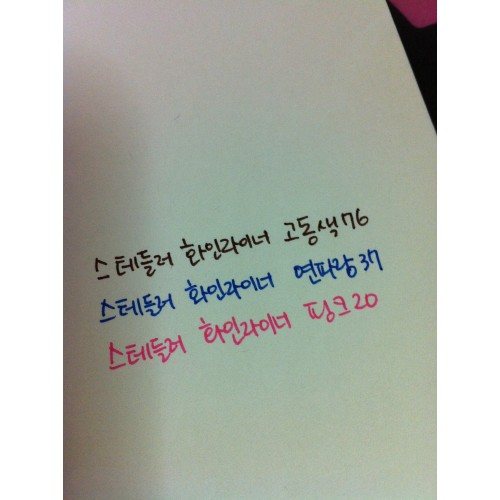 스테들러 화인라이너 고동색76
스테들러 화인라이너 연파랑37
스테들러 화인라이너 핑크20